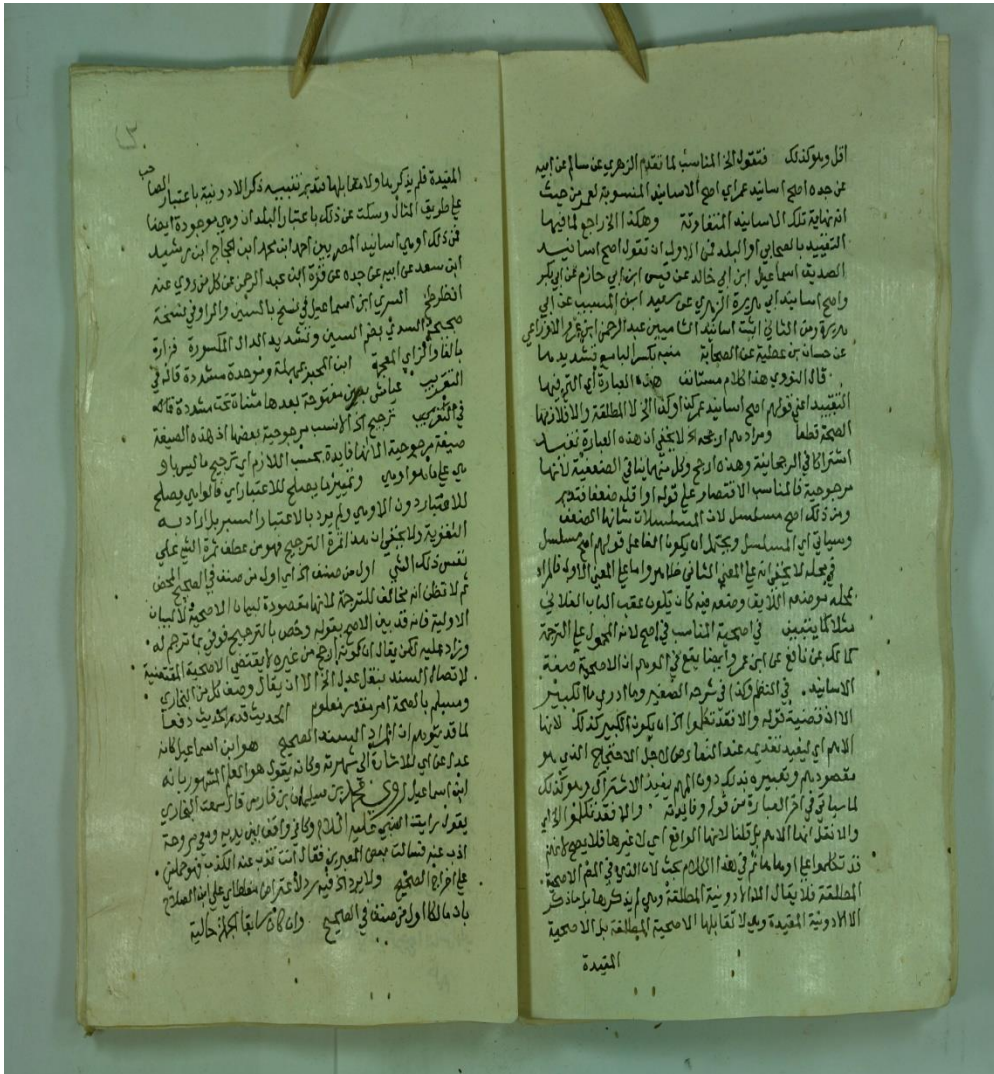 اقل وهو كذلك فتقول الخ المناسب لما تقدم الزهري عن سالم عن ابيه
عن جده اصح اسانيد عمر اي اصح الاسانيد المنسوبة لعمر من حيث
انه نهاية تلك الاسانيد المتفاوتة وهكذا الخ راجع لما فيها
التقييد بالصحابي او البلد فمن الاول ان تقول اصح اسانيد
الصديق اسماعيل ابن ابي خالد عن قيس ابن ابي حازم عن ابي بكر
واصح اسانيد ابي هريرة الزهري عن سعيد ابن المسيب عن ابي
هريرة ومن الثاني اثبت اسانيد الشاميين عبد الرحمن ابن عمرو الاوزاعي
عن حسان بن عطية عن الصحابة منبه بكسر الباء مع تشديدها
قال النووي هذا كلام مستانف هذه العبارة اي التي فيها
التقييد اعني قولهم اصح اسانيد عمر كذا وكذا الخ لا المطلقة والا فلازمها
الصحة قطعا ومرادهم ارجحه الخ لا يخفى ان هذه العبارة تفيد
اشتراكا في الرجحانية وهذه ارجح وكل منهما ينافي الضعفية لانها
مرجوحية فالمناسب الاقتصار على قوله او اقله ضعفا فتدبر
ومن ذلك اصح مسلسل لان المتسلسلات شانها الضعف
وسياتي اي المسلسل ويحتمل ان يكون الفاعل قولهم اصح مسلسل
في محله لا يخفى انه على المعنى الثاني ظاهر واما على المعنى الاول فالمراد
بمحله موضعه اللايق وضعه فيه كان يكون عقب الباب الفلاني
مثلا كما يتعين في اصحية المناسب في اصح لانه المحمول على الترجمة
كمالك عن نافع عن ابن عمر وايضا يقع في الوهم ان الاصحية صفة
الاسانيد . في النظم وكذا في شرحه الصغير وما ادري ما الكبير
الا ان قضية قوله والا فقد تكلموا الخ ان يكون الكبير كذلك لانها
الاهم اي ليفيد تقديمه عند التعارض لاجل الاحتجاج الذي هو
مقصودهم وتعبيره بذلك دون المهم يفيد الاشتراك وهو كذلك
لما سياتي في اخر العبارة من قوله وفائدته . والا فقد تكلموا الخ اي
والا نقل انها الاهم بل قلنا لانها الواقع اي لا غيرها فلا يصح لانهم
قد تكلموا على اوها ما ثم في هذا الكلام بحث لان الذي في المقام الاصحية
المطلقة فلا يقال الا الادونية المطلقة وهي لم يذكرها بل ما ذكر
الا الادونية المقيدة وهي لا تقابلها الاصحية المطلقة بل الاصحية
المقيدة
المقيدة فلم يذكرها ولا مقابلها فتدبر تنبيه ذكر الادونية باعتبار الصاحب
على طريق المثال وسكت عن ذلك باعتبار البلدان وهي موجودة ايضا
فمن ذلك اوهى اسانيد المصريين احمد ابن محمد ابن الحجاج ابن رشيد
ابن سعد عن ابيه عن جده عن قرة ابن عبد الرحمن عن كل من روى عنه
انظر طخ السري ابن اسماعيل في نسخ بالسين والراء وفي نسخة
صحيحة السدي بضم السين وتشديد الدال المكسورة فزارة
بالفاء والزاي المعجمة ابن المحبر بمهملة وموحدة مشددة قاله في
التقريب عياش بعين مفتوحة بعدها مثناة تحت مشددة قاله
في التقريب ترجيح الخ الانسب مرجوحية بعضها اذ هذه الصيغة
صيغة مرجوحية الا انها فايدة بحسب اللازم اي ترجيح ما ليس باو
هى على ما هو اوهى وتمييز ما يصلح للاعتبار اي فالواهي يصلح
للاعتبار دون الاوهى ولم يرد بالاعتبار السبر بل اراد به
التقوية ولا يخفى ان هذا ثمرة الترجيح فهو من عطف ثمرة الشي على
نفس ذلك الشي اول من صنف الخ اي اول من صنف في الصحيح المحض
ثم لا تظن انه مخالف للترجمة لانها مقصودة لبيان الاصحية لا لبيان
الاولية فانه قد بين الاصح بقوله وخص بالترجيح فوفى بما ترجم له .
وزاد عليه لكن يقال ان كونه ارجح من غيره لا يقتضي الاصحية المقتضية
لاتصال السند بنقل عدل الخ الا ان يقال وصف كل من البخاري
ومسلم بالصحة امر مقرر معلوم الحديث قدم الحديث دفعا
لما قد يتوهم ان المراد السند الصحيح هو ابن اسماعيل كانه
عدل عن اي للاشارة الى شهرته وكانه يقول هو العلم المشهور بانه
ابن اسماعيل روي محمد بن سليمان ابن فارس قال سمعت البخاري
يقول رايت النبي عليه السلام وكاني واقف بين يديه ومعي مروحة
اذب عنه فسالت بعض المعبرين فقال انت تذب عنه الكذب فهو حملني
على اخراج الصحيح ولا يرد الخ فيه رد لاعتراض مغلطاي على ابن الصلاح
بان مالكا اول من صنف في الصحيح وان كان سابقا الجملة حالية